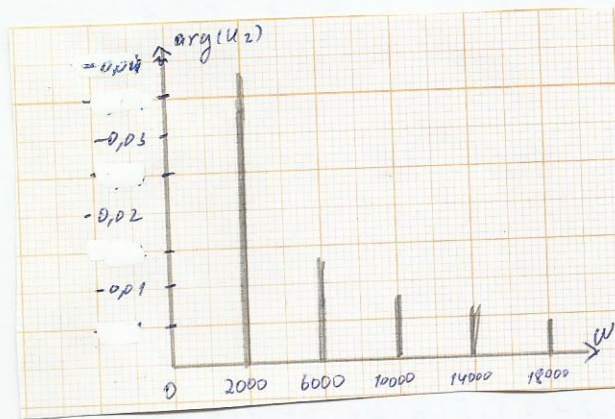 arg(U2)
-0,04
-0,03
-0,02
-0,01
0 2000 6000 10000 14000 18000 W